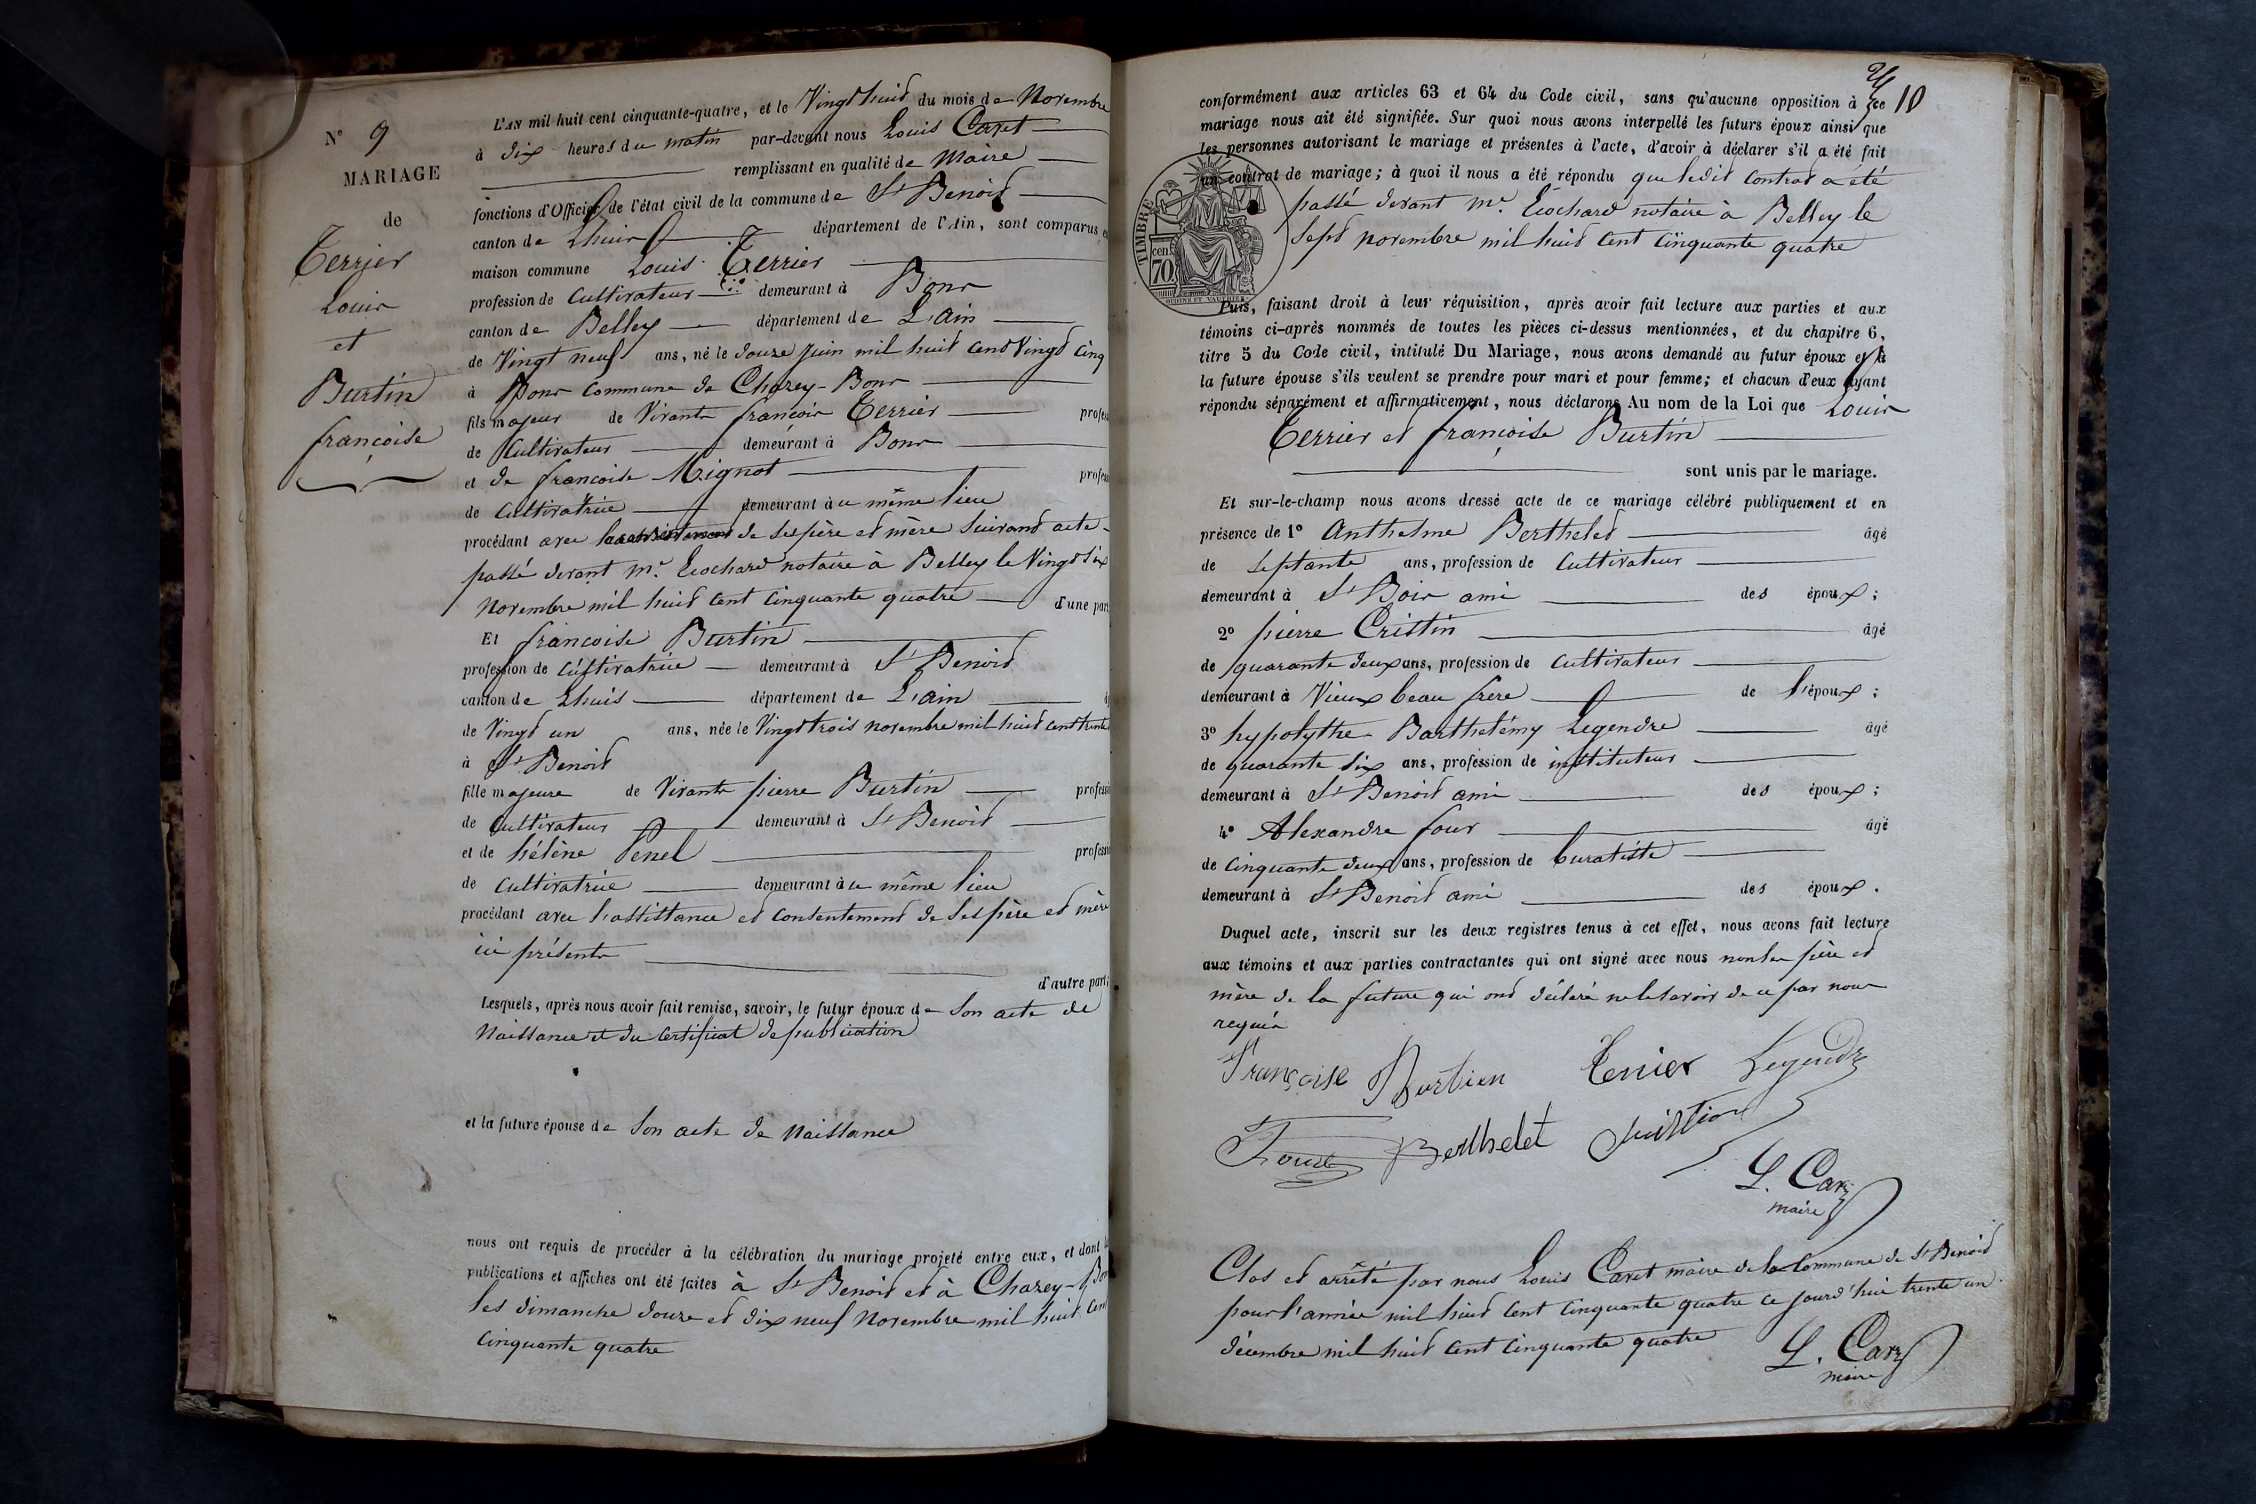 N° 9
MARIAGE
de
Terrier
Louis
et
Burtin
françoise
L'AN mil huit cent cinquante-quatre, et le Vingt huit du mois de Novembre
à dix heures du matin par-devant nous Louis Caret
remplissant en qualité de Maire
fonctions d'Officier de l'état civil de la commune de St Benoit
canton de Lhuis département de l'Ain, sont comparus en
maison commune Louis Terrier
profession de Cultivateur demeurant à Bons
canton de Belley département de L'ain
de Vingt neuf ans, né le douze juin mil huit cent Vingt cinq
à Bons Commune de Chazey-Bons
fils majeur de Vivants françois Terrier profes
de Cultivateur demeurant à Bons
et de francoise Mignot profes
de Cultivatrice demeurant au même lieu
procédant avec de ses père et mère suivant acte
passé devant Me. Ecochard notaire à Belley le Vingt six
Novembre mil huit cent cinquante quatre d'une part
Et françoise Burtin
profession de cultivatrice demeurant à St Benoit
canton de Lhuis département de L'ain
de Vingt un ans, née le Vingt trois novembre mil huit cent trente
à St Benoit
fille majeure de Vivants pierre Burtin profess
de Cultivateur demeurant à St Benoit
et de hélène Penel profess
de Cultivatrice demeurant au même lieu
procédant avec l'assistance et consentement de ses père et mère
ici présents
d'autre part;
Lesquels, après nous avoir fait remise, savoir, le futur époux de son acte de
Naissance et du certificat de publication
et la future épouse de son acte de Naissance
nous ont requis de procéder à la célébration du mariage projeté entre eux, et dont
publications et affiches ont été faites à St Benoit et à Chazey-Bons
les dimanche douze et dix neuf Novembre mil huit cent
cinquante quatre
10
conformément aux articles 63 et 64 du Code civil, sans qu'aucune opposition à ce
mariage nous ait été signifiée. Sur quoi nous avons interpellé les futurs époux ainsi que
les personnes autorisant le mariage et présentes à l'acte, d'avoir à déclarer s'il a été fait
un contrat de mariage; à quoi il nous a été répondu que ledit contrat a été
passé devant Me. Ecochard notaire à Belley le
Sept novembre mil huit cent cinquante quatre
TIMBRE
cen.
70
Puis, faisant droit à leur réquisition, après avoir fait lecture aux parties et aux
témoins ci-après nommés de toutes les pièces ci-dessus mentionnées, et du chapitre 6,
titre 5 du Code civil, intitulé Du Mariage, nous avons demandé au futur époux et à
la future épouse s'ils veulent se prendre pour mari et pour femme; et chacun d'eux ayant
répondu séparément et affirmativement, nous déclarons Au nom de la Loi que Louis
Terrier et françoise Burtin
sont unis par le mariage.
Et sur-le-champ nous avons dressé acte de ce mariage célébré publiquement et en
présence de 1° Anthelme Berthelet âgé
de septante ans, profession de Cultivateur
demeurant à St Bois ami des époux;
2° pierre Cristin âgé
de quarante deux ans, profession de Cultivateur
demeurant à Vieux beau frère de l'époux;
3° hypolythe Barthelémy Legendre âgé
de quarante six ans, profession de instituteur
demeurant à St Benoit ami des époux;
4° Alexandre four âgé
de cinquante deux ans, profession de buraliste
demeurant à St Benoit ami des époux.
Duquel acte, inscrit sur les deux registres tenus à cet effet, nous avons fait lecture
aux témoins et aux parties contractantes qui ont signé avec nous non les père et
mère de la future qui ont déclaré ne le savoir de ce par nous
requis
Françoise Burtien Terrier Legendre
Four Berthelet Cristin
L. Caret
maire
Clos et arrêté par nous Louis Caret maire de la Commune de St Benoit
pour l'année mil huit cent cinquante quatre ce jourd'hui trente un
décembre mil huit cent cinquante quatre
L. Caret
maire